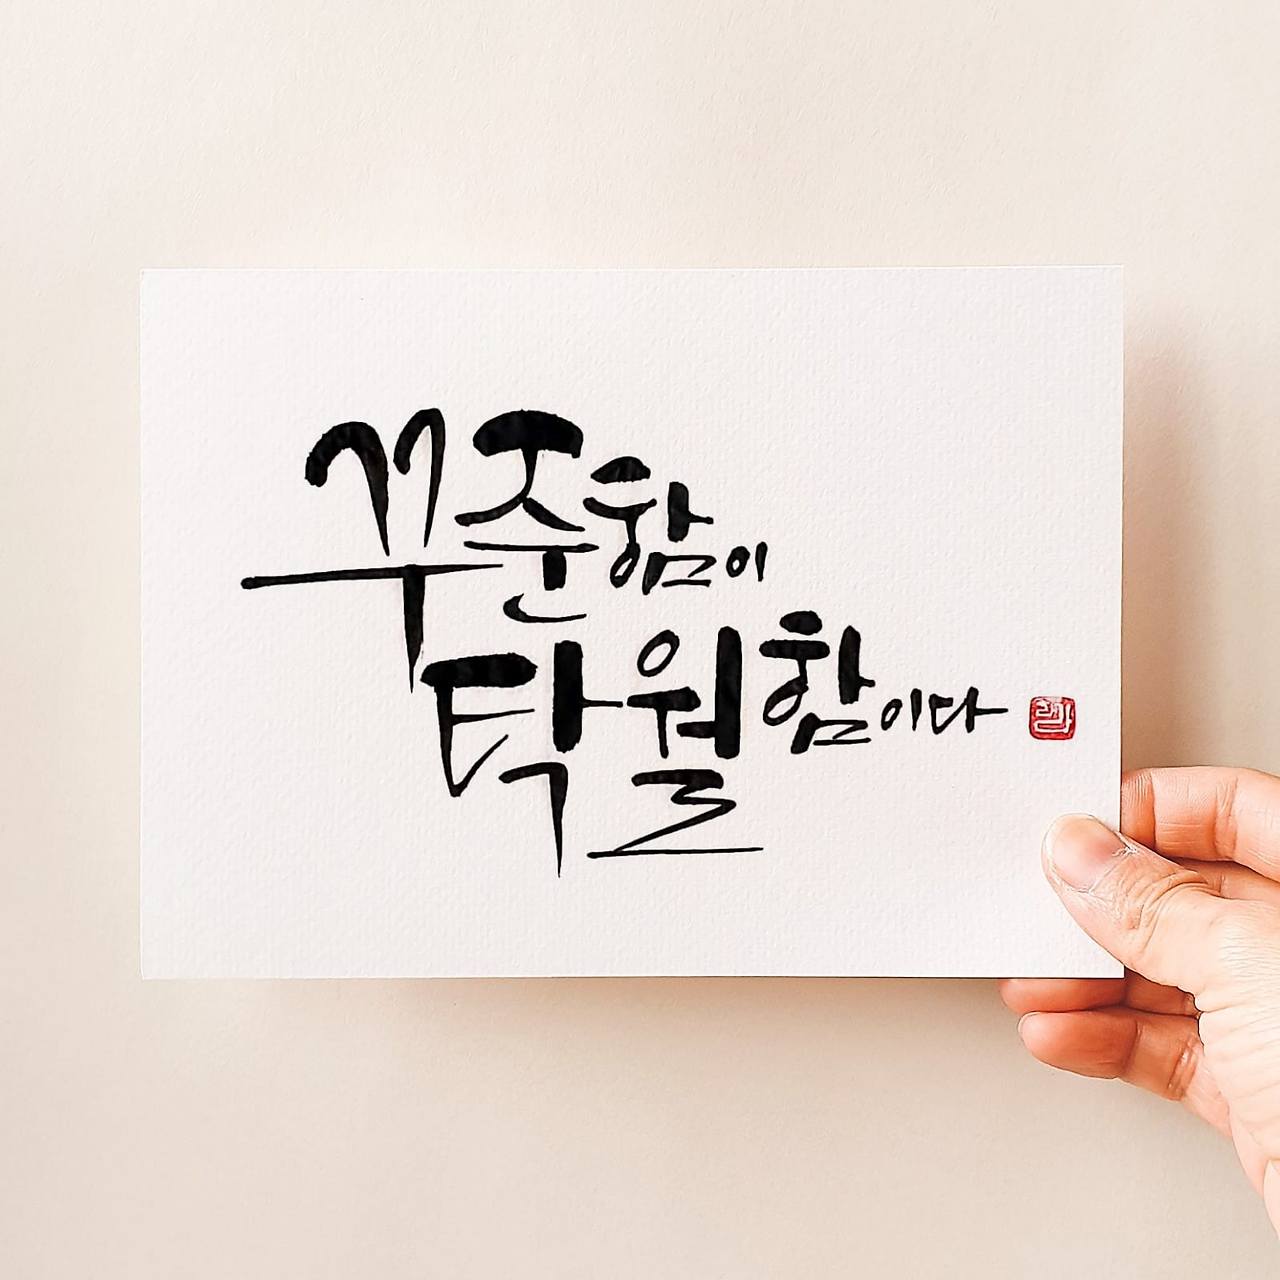 꾸준함이
탁월함이다